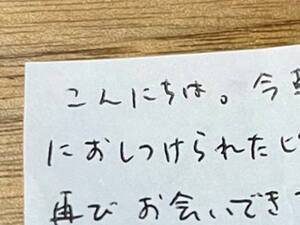 こんにちは。今
におしつけられた
再びお会いでき